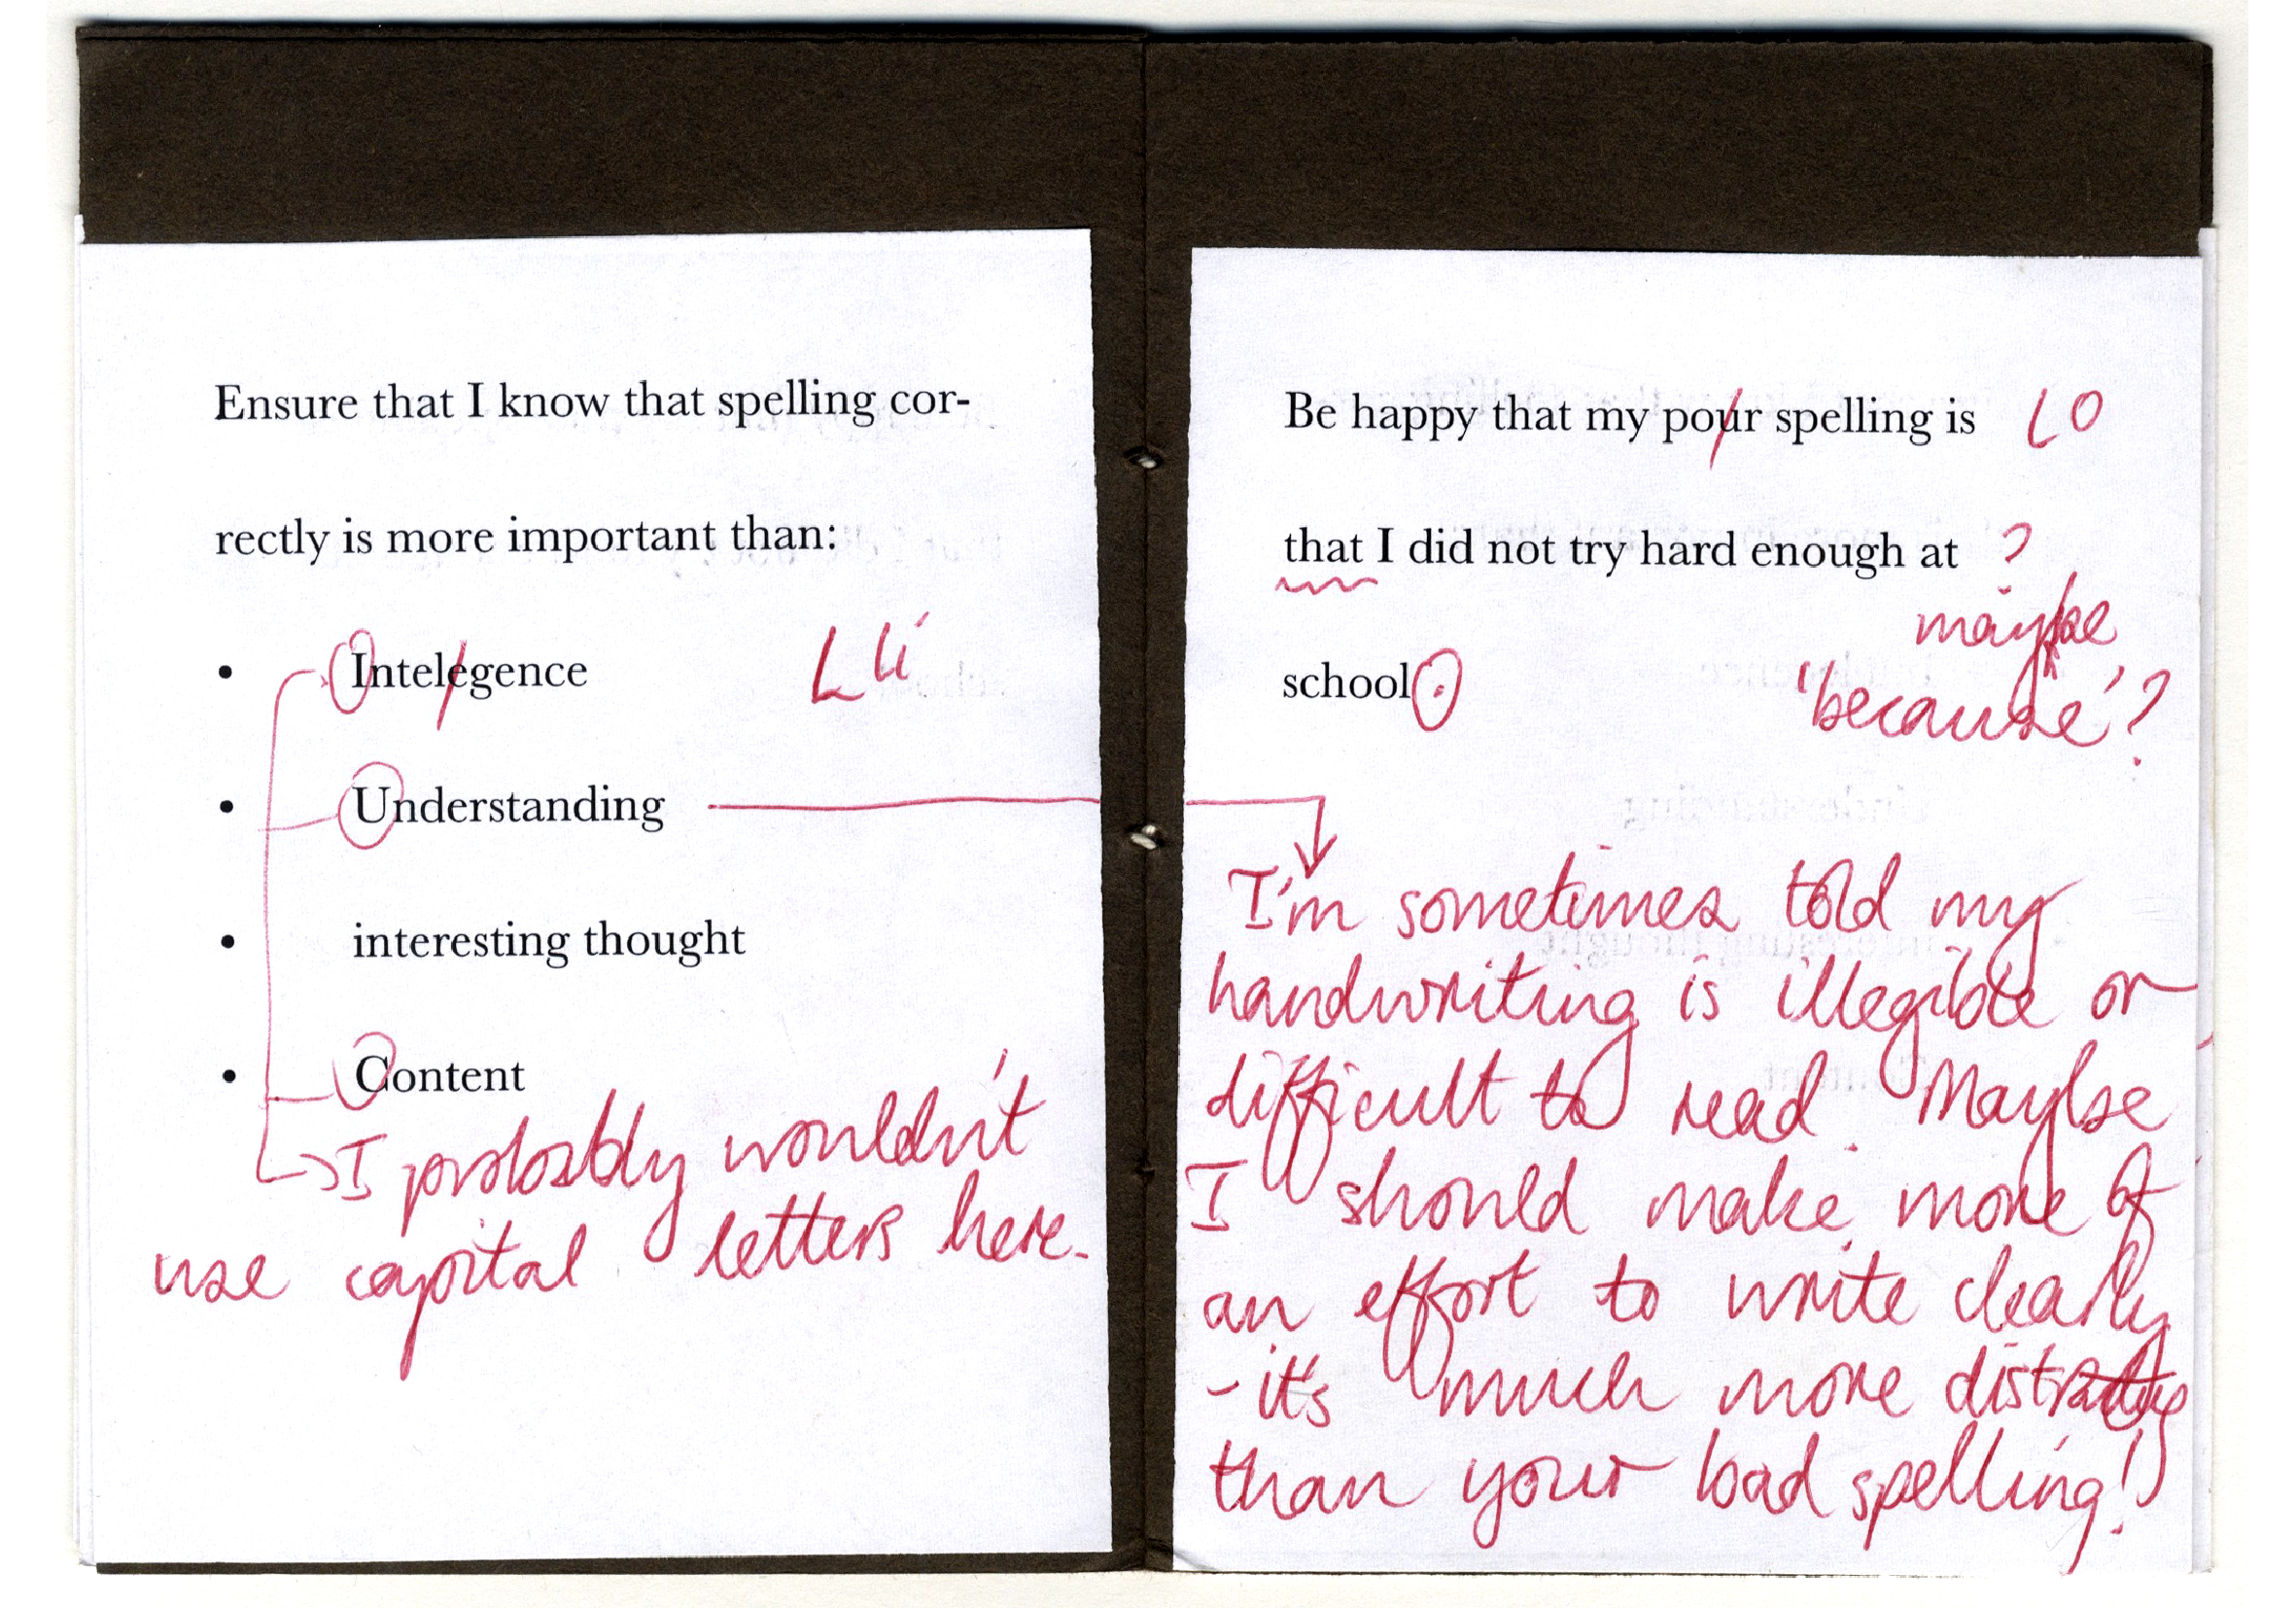 Ensure that I know that spelling cor-
rectly is more important than:
• Intelegence
• Understanding
• interesting thought
• Content
I probably wouldn't
use capital letters here.
Be happy that my pour spelling is
o
that I did not try hard enough at
?
maybe
school.
'because'?
I'm sometimes told my
handwriting is illegible or
difficult to read. Maybe
I should make more of
an effort to write clearly
- it's much more
than your bad spelling!